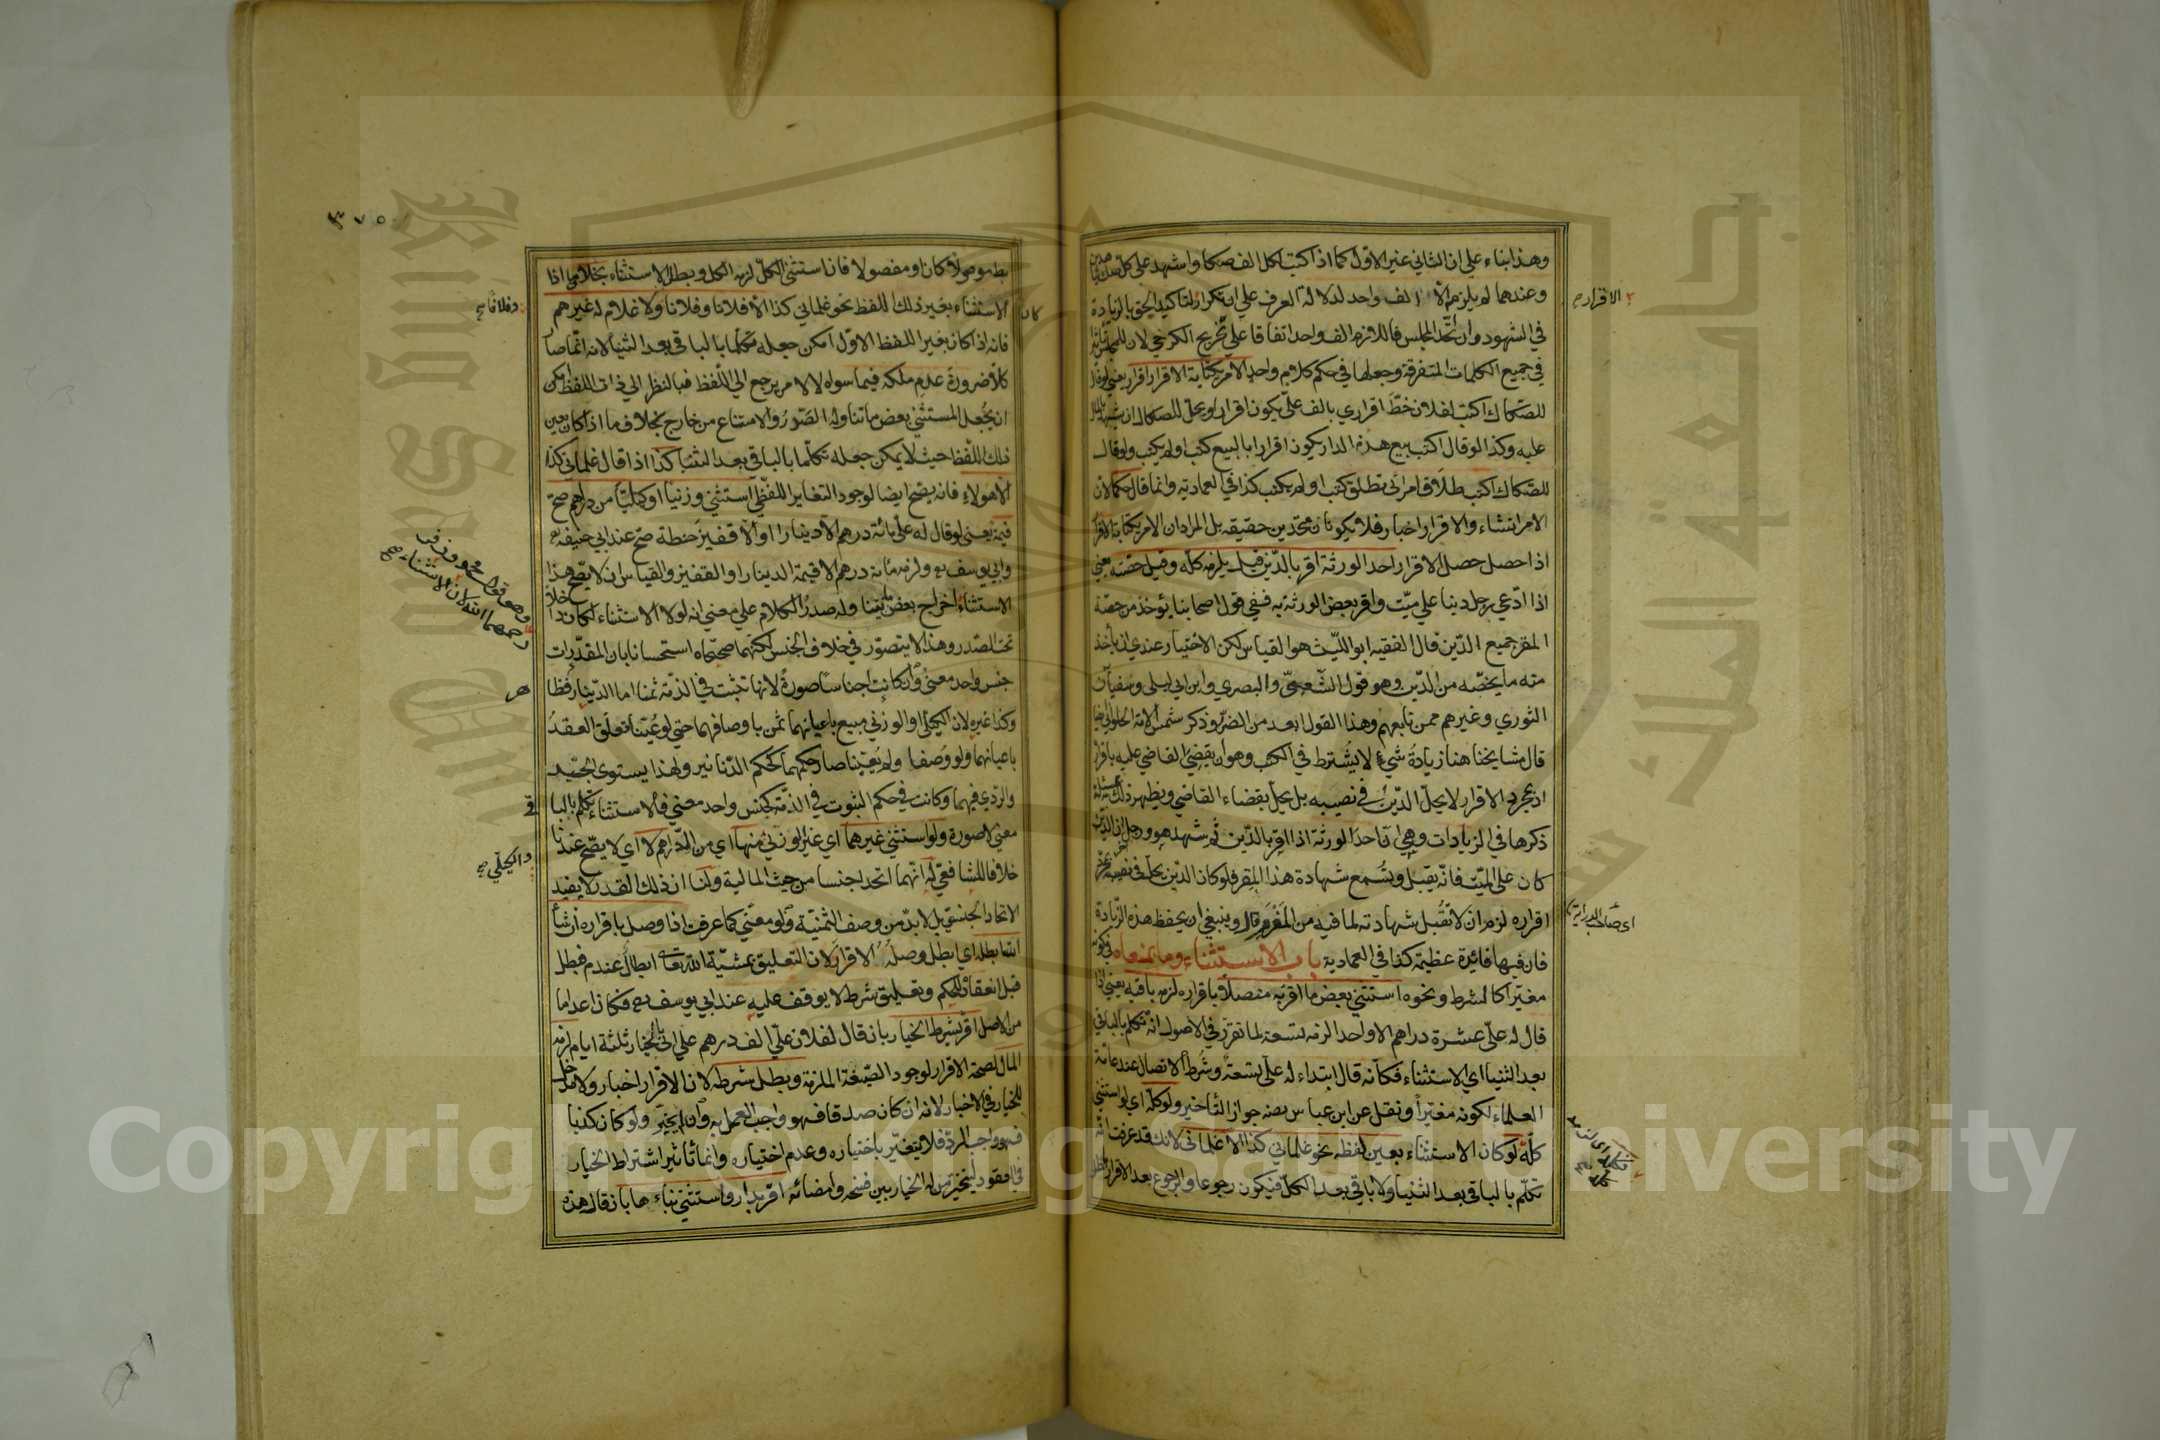 وهذا بناء على ان الثاني غير الاول كما اذا كتب لكل الف صكا واشهد على كل
وعندهما لم يلزم الا الف واحد لدلالة العرف على ان تكرار لتاكيد الحق بالزيادة
في الشهود وان اتحد المجلس فاللازم الف واحد اتفاقا على تخريج الكرخي لان للمجلس تاثيرا
في جميع الكلمات المتفرقة وجعلها في حكم كلام واحد الامر بكتابة الاقرار اقرار يعني لو قال
للصكاك اكتب لفلان خط اقراري بالف على يكون اقرارا ويحل للصكاك ان يشهد
عليه وكذا لو قال اكتب بيع هذه الدار يكون اقرارا بالبيع كتب او لم يكتب ولو قال
للصكاك اكتب طلاق امرأتي تطلق كتب او لم يكتب كذا في العمادية وانما قال حكما لان
الامر انشاء والاقرار اخبار فلا يكونان متحدين حقيقة بل المراد ان الامر بكتابة الاقرار
اذا حصل حصل الاقرار احد الورثة اقر بالدين قيل يلزمه كله وقيل حصته يعني
اذا ادعى رجل دينا على ميت واقر بعض الورثة به ففي قول اصحابنا يؤخذ من حصة
المقر جميع الدين قال الفقيه ابو الليث هو القياس لكن الاختيار عندي ان يأخذ
منه ما يخصه من الدين وهو قول الشعبي والبصري وابن ابي ليلى وسفيان
الثوري وغيرهم ممن تابعهم وهذا القول ابعد من الضرر وذكر شمس الائمة الحلواني ايضا
قال مشايخنا هنا زيادة شيء لا يشترط في الكتب وهو ان يقضي القاضي عليه باقراره
اذ بمجرد الاقرار لا يحل الدين في نصيبه بل يحل بقضاء القاضي ويظهر ذلك بمسئلة
ذكرها في الزيادات وهي ان احد الورثة اذا اقر بالدين ثم شهد هو ورجل ان الدين
كان على الميت فانه يقبل وتسمع شهادة هذا المقر فلو كان الدين يحل في نصيبه بمجرد
اقراره لزم ان لا تقبل شهادته لما فيه من المغرم قال وينبغي ان يحفظ هذه الزيادة
فان فيها فائدة عظيمة كذا في العمادية باب الاستثناء وما بمعناه في كونه
مغيرا كالشرط ونحوه استثنى بعض ما اقر به متصلا باقراره لزمه باقيه يعني اذا
قال له على عشرة دراهم الا واحدا لزمه تسعة لما تقرر في الاصول انه تكلم بالباقي
بعد الثنيا اي الاستثناء فكانه قال ابتداء له على تسعة وشرط الاتصال عند عامة
العلماء لكونه مغيرا ونقل عن ابن عباس رضه جواز التاخير ولو كله اي لو استثنى
كله لو كان الاستثناء بعين لفظه نحو غلماني كذا الا غلماني لانك قد عرفت انه
تكلم بالباقي بعد الثنيا ولا باقي بعد الكل فيكون رجوعا والرجوع بعد الاقرار باطل
الاقرار صح
اي صاحب الدراية
٣٧٥
موصولا كان او مفصولا فان استثنى الكل لزمه الكل وبطل الاستثناء بخلاف ما اذا
الاستثناء بغير ذلك اللفظ نحو غلماني كذا الا فلانا وفلانا ولا غلام له غيرهم
فانه اذا كان بغير اللفظ الاول امكن جعله متكلما بالباقي بعد الثنيا لانه انما صار
كلا ضرورة عدم ملكه فيما سواه لا لامر يرجع الى اللفظ فبالنظر الى ذات اللفظ امكن
ان يجعل المستثنى بعض ما تناوله الصدر والامتناع من خارج بخلاف ما اذا كان بعين
ذلك اللفظ حيث لا يمكن جعله تكلما بالباقي بعد الثنيا كذا اذا قال غلماني كذا
الا هؤلاء فانه يصح ايضا لوجود التغاير اللفظي استثنى وزنيا او كيليا من دراهم صح
قيمة يعني لو قال له على مائة درهم الا دينارا او الا قفيز حنطة صح عند ابي حنيفة
وابي يوسف ولزمه مائة درهم الا قيمة الدينار او القفيز والقياس ان لا يصح هذا
الاستثناء اخراج بعض ما يتناوله صدر الكلام على معنى انه لولا الاستثناء لكان داخلا
تحت الصدر وهذا لا يتصور في خلاف الجنس لكنهما صححاه استحسانا بان المقدرات
جنس واحد معنى وان كانت اجناسا صورة لانها تثبت في الذمة ثمنا اما الدينار فظاهر
وكذا غيره لان الكيلي والوزني مبيع باعيانهما ثمن باوصافهما حتى لو عينا تعلق العقد
باعيانهما ولو وصفا ولم يعينا صار حكمهما كحكم الدنانير ولهذا يستوي الجيد
والردي فيهما وكانت في حكم الثبوت في الذمة كجنس واحد معنى فالاستثناء تكلم بالباقي
معنى لا صورة ولو استثنى غيرهما اي غير الوزني منها اي من الدراهم لا اي لا يصح عندنا
خلافا للشافعي له انهما اتحدا جنسا من حيث المالية ولنا ان ذلك القدر لا يفيد
الاتحاد الجنسي بل لا بد من وصف الثمنية ولو معنى كما عرفت اذا وصل باقراره ان شاء
الله ابطله اي ابطل وصله الاقرار لان التعليق بمشية الله تعالى ابطال عند م فبطل
قبل انعقاده للحكم وتعليق بشرط لا يوقف عليه عند ابي يوسف فكان اعداما
من الاصل اقر بشرط الخيار بان قال لفلان على الف درهم على اني بالخيار ثلثة ايام لزمه
المال لصحة الاقرار لوجود الصيغة الملزمة وبطل شرطه لان الاقرار اخبار ولا مدخل
للخيار في الاخبار لانه ان كان صدقا فهو واجب العمل به وان لم يخير ولو كان كذبا
فهو واجب الرد فلا يتغير باختياره وعدم اختياره وانما تاثير اشتراط الخيار
في العقود ليتخير من له الخيار بين فسخه وامضائه اقر بدار واستثنى بناءها بان قال هذه
كان
وفلانا صح
رحمهما الله لان الاستثناء صح
والكيلي صح